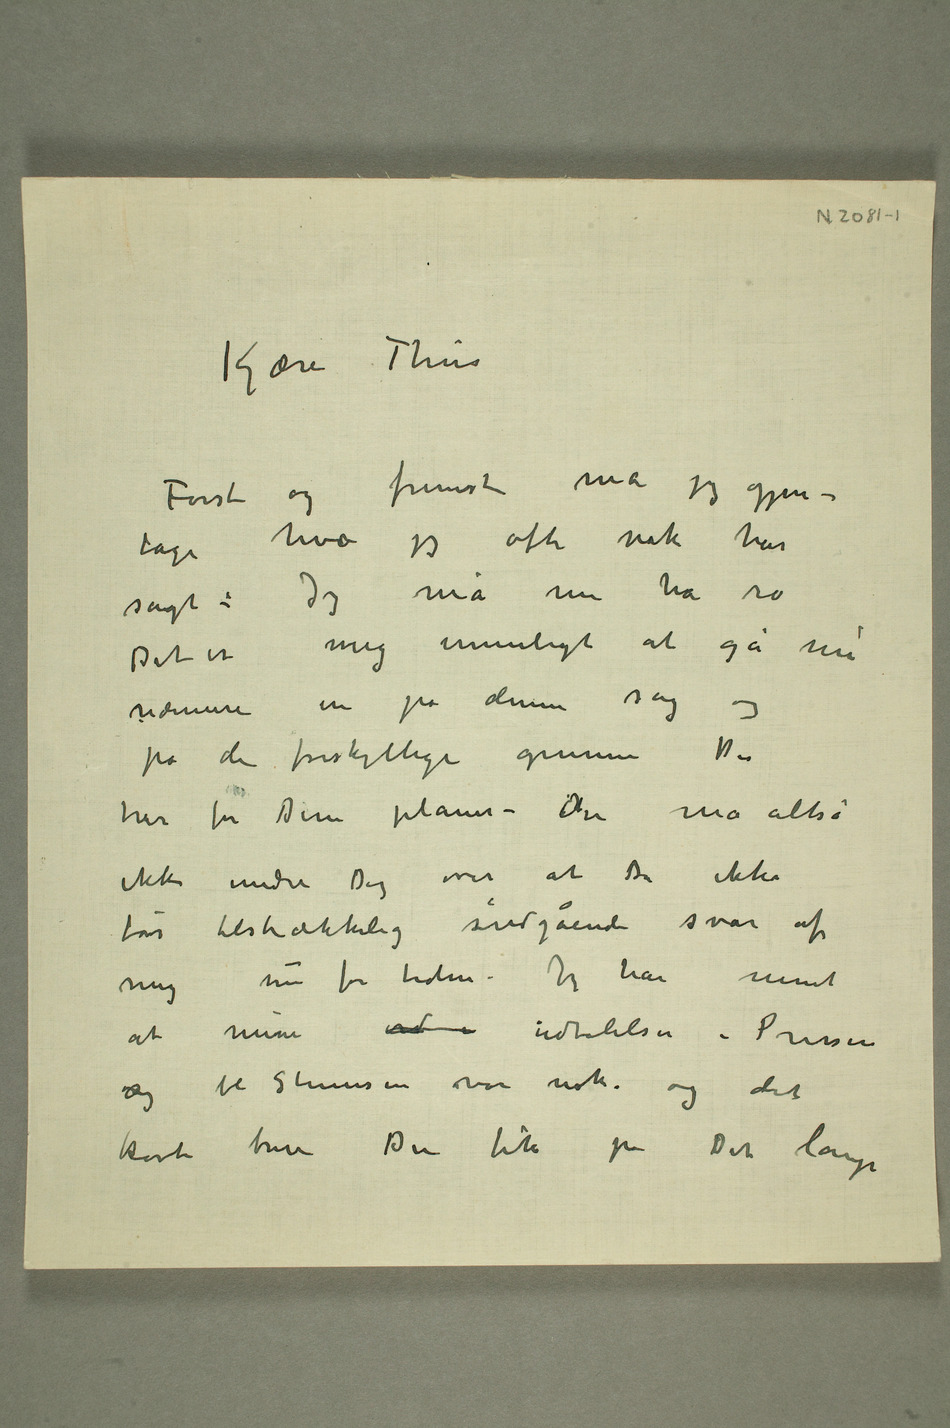 N 2081-1
Kjære Thiis
Først og fremst må jeg gjen-
tage hva jeg ofte nok har
sagt: Jeg må nu ha ro
Det er mig umuligt at gå nu
nærmere in på denne sag og
på de forskjellige grunne Du
har for Dine planer – Du må altså
ikke undre Dig over at Du ikke
får tilstrækkelig indgående svar af
mig nu for tiden – Jeg har ment
at mine udtalelser i Pressen
og til Stenersen var nok. og det
korte brev Du fik på Det lange